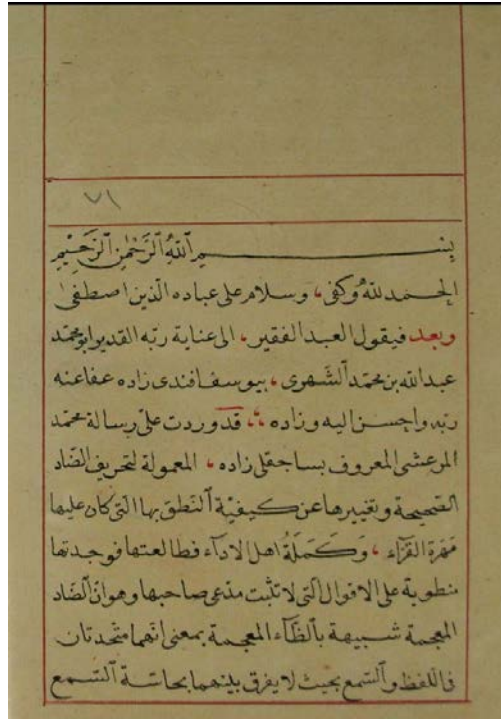 ٧١
بِسْــــمِ ٱللهِ ٱلرَّحْمٰنِ ٱلرَّحِيْمِ
الحــمد للهُ وكفى ، وسلام على عباده الّذين اصطفىٰ
وبعد فيقول العبد الفقير ، الى عناية ربّه القدير ابو محمّد
عبد الله بن محمّد ٱلشّهوى ، بيوسف افندى زاده عفا عنه
ربّه واحسن اليه وزاده ،، قد وردت علىّ رسالة محمّد
المرعشى المعروف بساجقلى زاده ، المعمولة لتحريف الضّاد
الصّحيحة وتغييرها عن كيفيّة ٱلنّطق بها الّتى كان عليها
مَهَرة القرّاء ، وَكَمَلَةُ اهل الادآء فطالعتها فوجدتها
منطوية على الاقوال الّتى لا تثبت مدّعى صاحبها وهو انّ ٱلضّاد
المعجمة شبيهة بٱلظّاء المعجمة بمعنى انّهما متّحدتان
فى اللّفظ وٱلسّمع بحيث لا يفرق بينهما بحاسّة ٱلسّمع